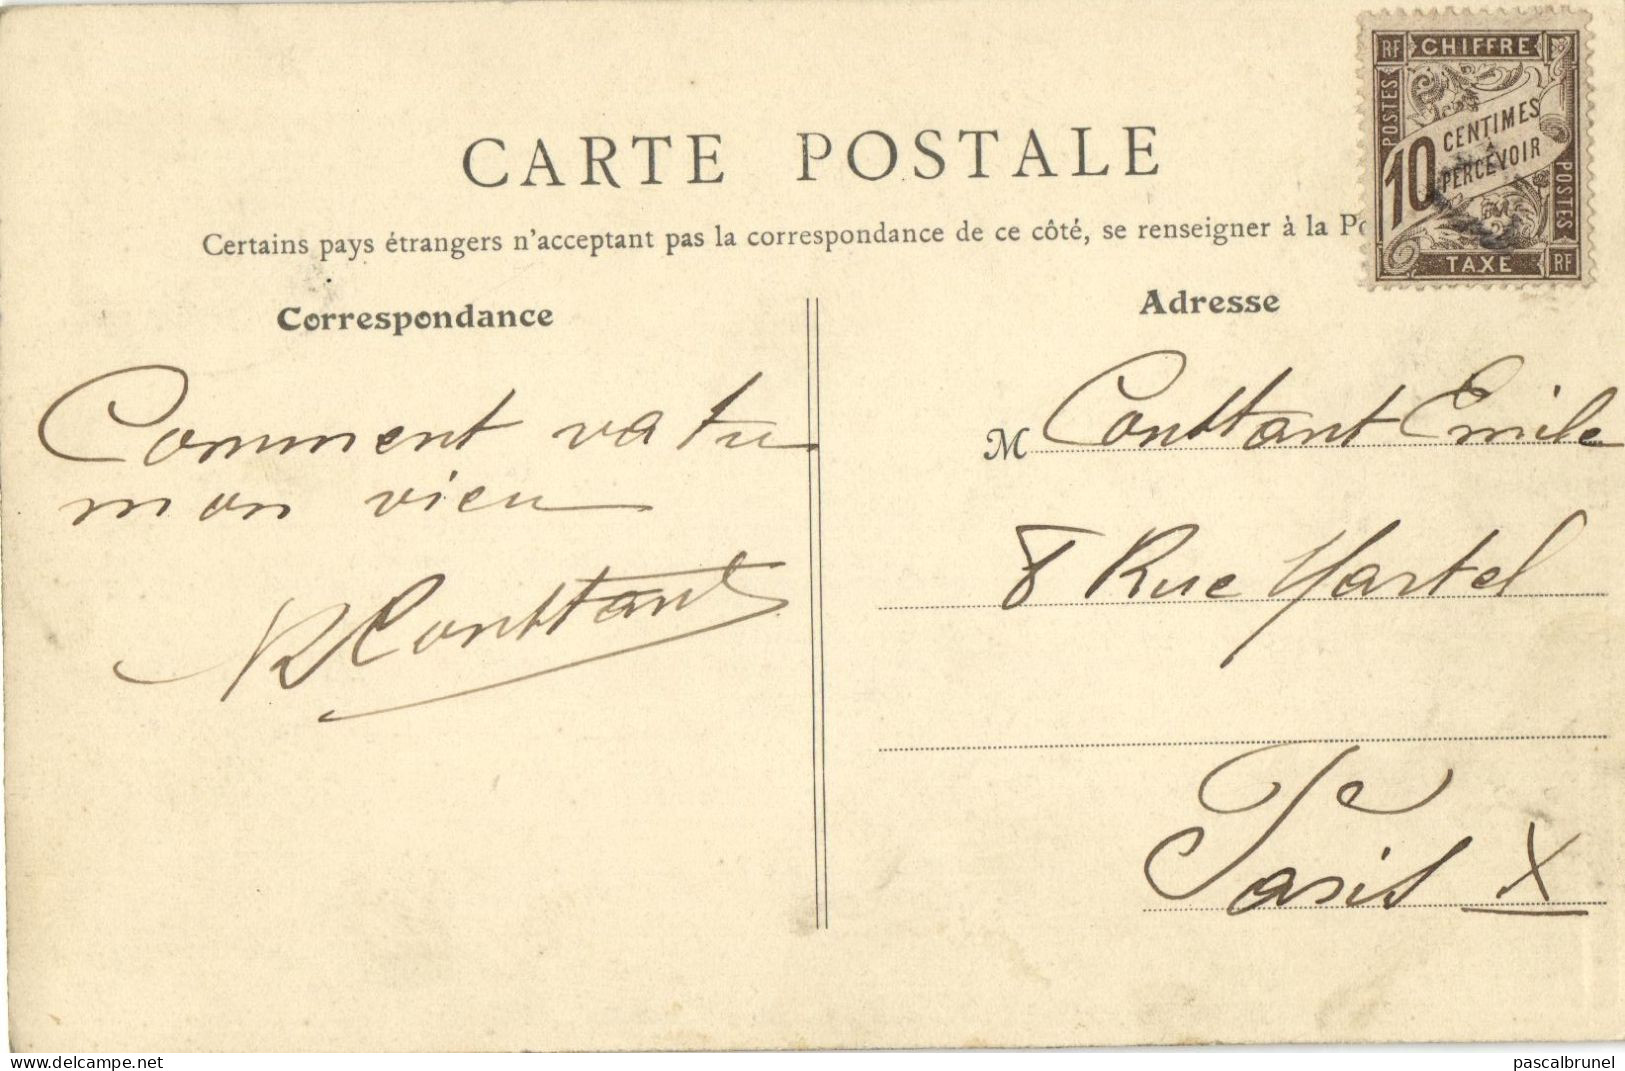 RF CHIFFRE
POSTES
10 CENTIMES
À
PERCEVOIR
POSTES
TAXE RF
CARTE POSTALE
Certains pays étrangers n'acceptant pas la correspondance de ce côté, se renseigner à la Po
Correspondance
Comment va tu
mon vieu
Conttant
Adresse
M Conttant Emile
8 Rue Martel
Paris X
delcampe.net
pascalbrunel